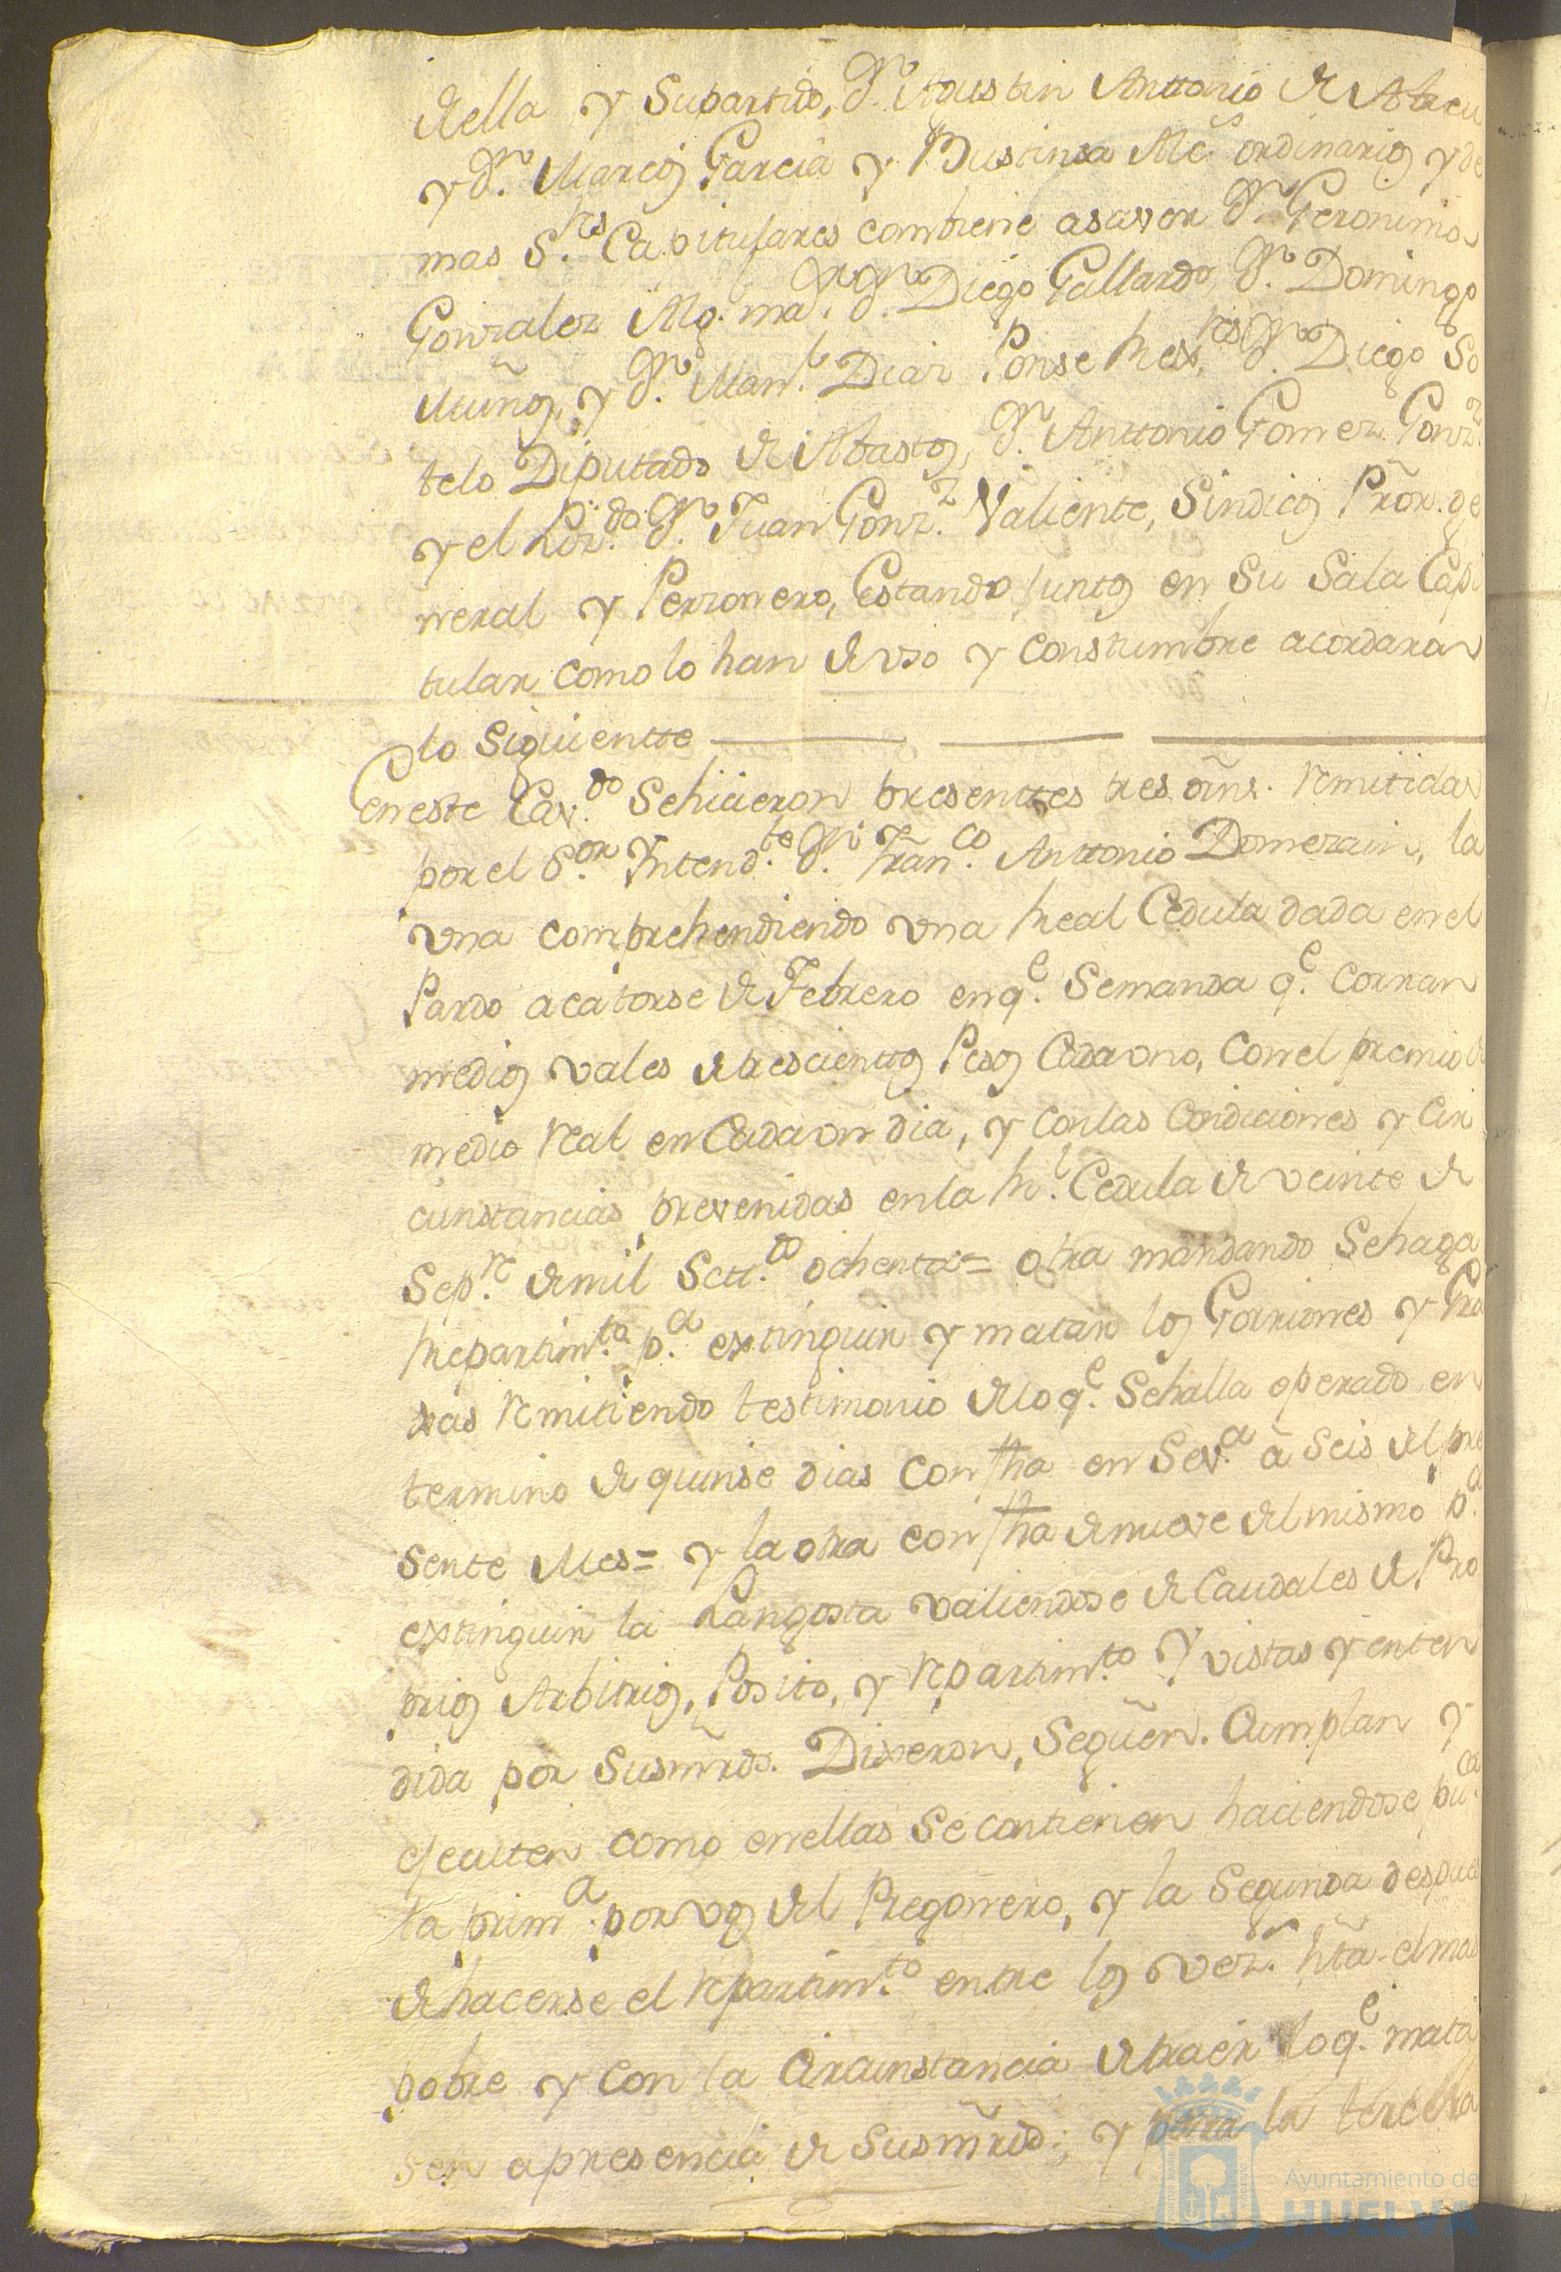 della y Supartido, Dn. Agustin Anttonio de Abreu
y Dn. Marcos Garcia y Bustinsa Alcs. ordinarios y de
mas S.res Capitulares combiene asaver Dn. Geronimo
Gonzalez Alg. ma.or Dn. Diego Gallardo, Dn. Domingo
Muños, y Dn. Man.l Diaz Ponse Rex.res Dn. Diego So
telo Diputado de Abastos, Dn. Anttonio Gomez Gonz.z
y el Liz.do Dn. Juan Gonz.z Valiente, Sindicos Pror. ge
neral y Perzonero, Estando Juntos en Su Sala Capi
tular como lo han de vso y Constumbre acordaron
lo Siguientte
En este Cav.do Sehicieron presenttes tres orns. remitidas
por el S.or Yntend.te Dn. Fran.co Anttonio Domezain, la
vna comprehendiendo vna Real Cedula dada en el
Pardo acatorse de Febrero enq.e Semanda q.e Corran
medios vales detrescientos Pesos Cadauno, Con el premio de
medio real en Cadaun dia, y Conlas Condiciones y Cir
cunstancias prevenidas enla R.l Cedula de veinte de
Sep.re demil Sett.to ochenta = otra mandando Sehaga
Repartim.to p.a extinguir y matar los Gorriones y Gra
xas remitiendo testimonio deloq.e Sehalla operado en
termino de quinse dias con fha en Sev.a à Seis del pre
sente Mes = y la otra con fha de nueve del mismo p.a
extinguir la Langosta valiendose de Caudales de Pro
prios Arbitrios, Posito, y repartim.to Y vistas y enten
dida por Susmrds. Dixeron, Seguen. Cumplan y
ejecutten como en ellas Se contienen haciendose pu.ca
la prim.a por vos del Pregonero, y la Segunda despues
de hacerse el repartim.to entre los vez.s hta. el mas
pobre y con la Circunstancia de traér loq.e mata
sen apresencia de Susmrds.; y para la tercera
Ayuntamiento de
HUELVA